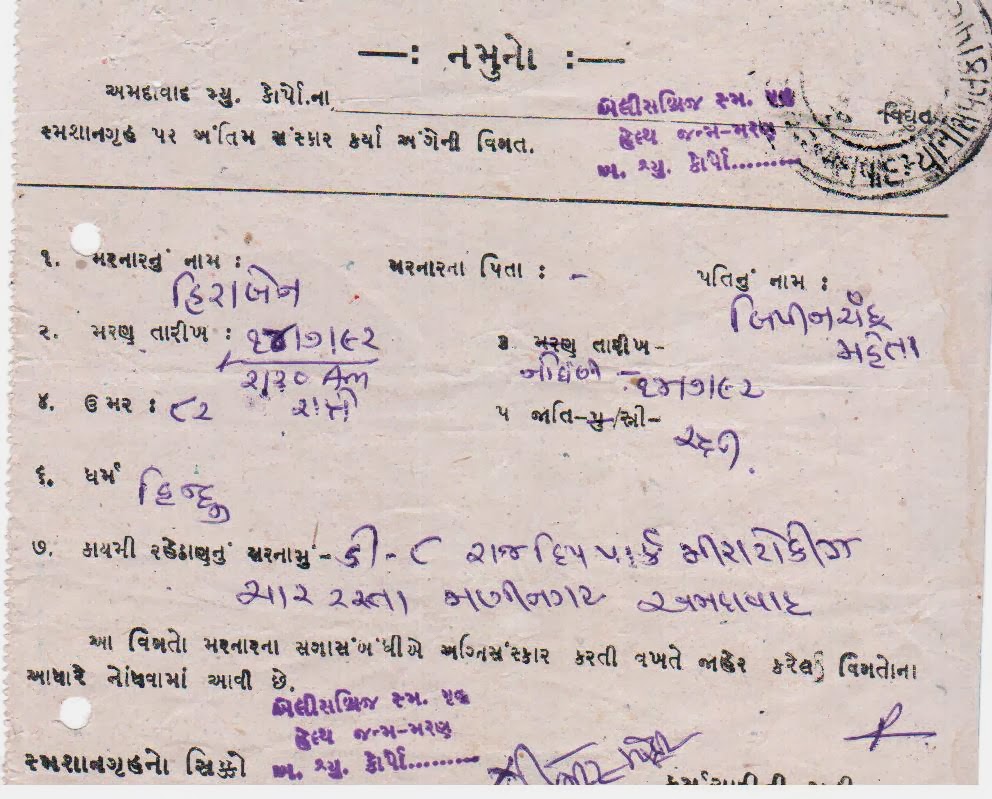 —: નમુનો :—
અમદાવાદ મ્યુ. કોર્પો.ના
એલીસબ્રિજ સ્મ. ગૃહ
હેલ્થ જન્મ-મરણ
અ. મ્યુ. કોર્પો.........
વિદ્યુત
સ્મશાનગૃહ પર અંતિમ સંસ્કાર કર્યા અંગેની વિગત.
૧. મરનારનું નામ : હિરાબેન મરનારના પિતા : - પતિનું નામ : બિપીનચંદ્ર
મહેતા
૨. મરણ તારીખ : ૧૪/૭/૯૨ ૩ મરણ તારીખ-
૨/૨૦ Am નોંધણી - ૧૪/૭/૯૨
રાત્રે
૪. ઉમર : ૮૨ ૫ જાતિ-પુ/સ્ત્રી-
સ્ત્રી.
૬. ધર્મ હિન્દુ
૭. કાયમી રહેઠાણનું સરનામું- ડી - ૮ રાજદિપ પાર્ક મીરા ટોકીઝ
ચાર રસ્તા મણીનગર અમદાવાદ
આ વિગતો મરનારના સગાસંબંધીએ અગ્નિસંસ્કાર કરતી વખતે જાહેર કરેલી વિગતોના
આધારે નોંધવામાં આવી છે.
એલીસબ્રિજ સ્મ. ગૃહ
હેલ્થ જન્મ-મરણ
અ. મ્યુ. કોર્પો.........
સ્મશાનગૃહનો સિક્કો